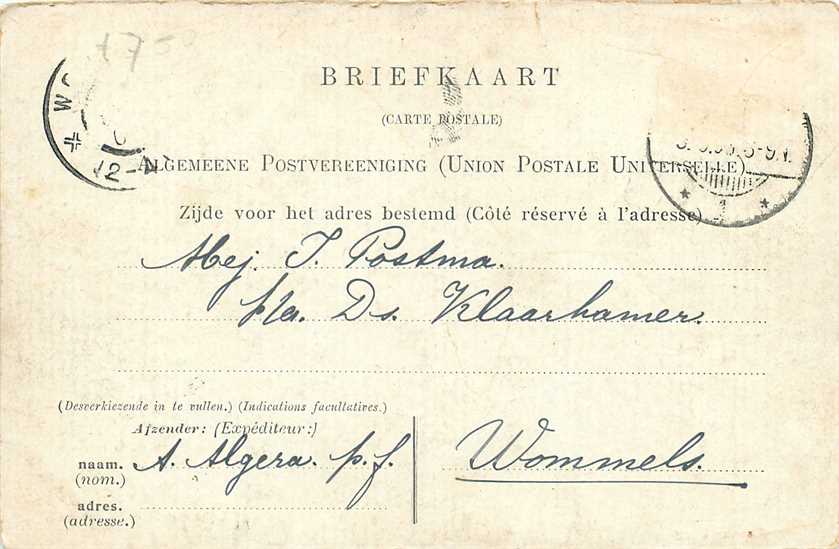 1750
BRIEFKAART
(CARTE POSTALE)
ALGEMEENE POSTVEREENIGING (UNION POSTALE UNIVERSELLE)
Zijde voor het adres bestemd (Côté réservé à l'adresse)
Mej. T. Postma.
p/a. Ds. Klaarhamer.
(Desverkiezende in te vullen.) (Indications facultatives.)
Afzender: (Expéditeur:)
naam. A. Algera. p.f.
(nom.)
Wommels.
adres.
(adresse.)
WO
12-
1